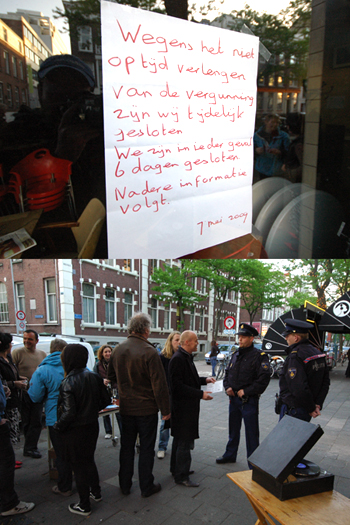 Wegens het niet
op tijd verlengen
van de vergunning
zijn wij tijdelijk
gesloten
We zijn in ieder geval
6 dagen gesloten.
Nadere informatie
volgt.
7 mei 2009